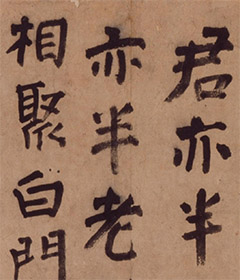 君亦半
亦半老
相聚白門